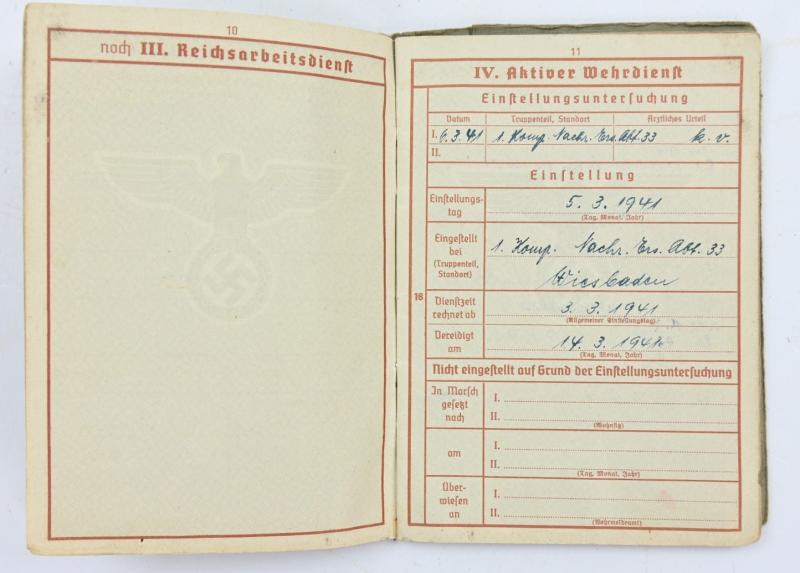 10
noch III. Reichsarbeitsdienst
11
IV. Aktiver Wehrdienst
Einstellungsuntersuchung
Datum Truppenteil, Standort Ärztliches Urteil
I. 6.3.41 1. Komp. Nachr. Ers. Abt. 33 k. v.
II.
Einstellung
Einstellungs-
tag
5. 3. 1941
(Tag, Monat, Jahr)
Eingestellt
bei
(Truppenteil,
Standort)
1. Komp. Nachr. Ers. Abt. 33
Wiesbaden
16
Dienstzeit
rechnet ab
3. 3. 1941
(Allgemeiner Einstellungstag)
Vereidigt
am
14. 3. 1941
(Tag, Monat, Jahr)
Nicht eingestellt auf Grund der Einstellungsuntersuchung
In Marsch
gesetzt
nach
I.
II.
(Wohnsitz)
am
I.
II.
(Tag, Monat, Jahr)
Über-
wiesen
an
I.
II.
(Wehrmeldeamt)